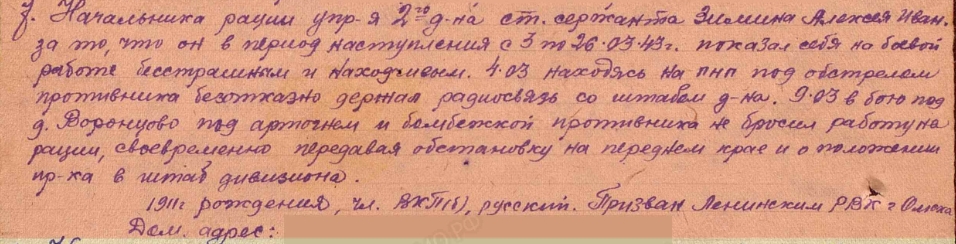 7. Начальника рации упр-я 2го д-на ст. сержанта Зимина Алексея Иван.
за то, что он в период наступления с 3 по 26.03.43г. показал себя на боевой
работе бесстрашным и находчивым. 4.03 находясь на пнп под обстрелом
противника безотказно держал радиосвязь со штабом д-на. 9.03 в бою под
д. Воронцово под артогнем и бомбежкой противника не бросил работу на
рации, своевременно передавая обстановку на переднем крае и о положении
пр-ка в штаб дивизиона.
1911г рождения, чл. ВКП(б), русский. Призван Ленинским РВК г Омска
Дом. адрес: